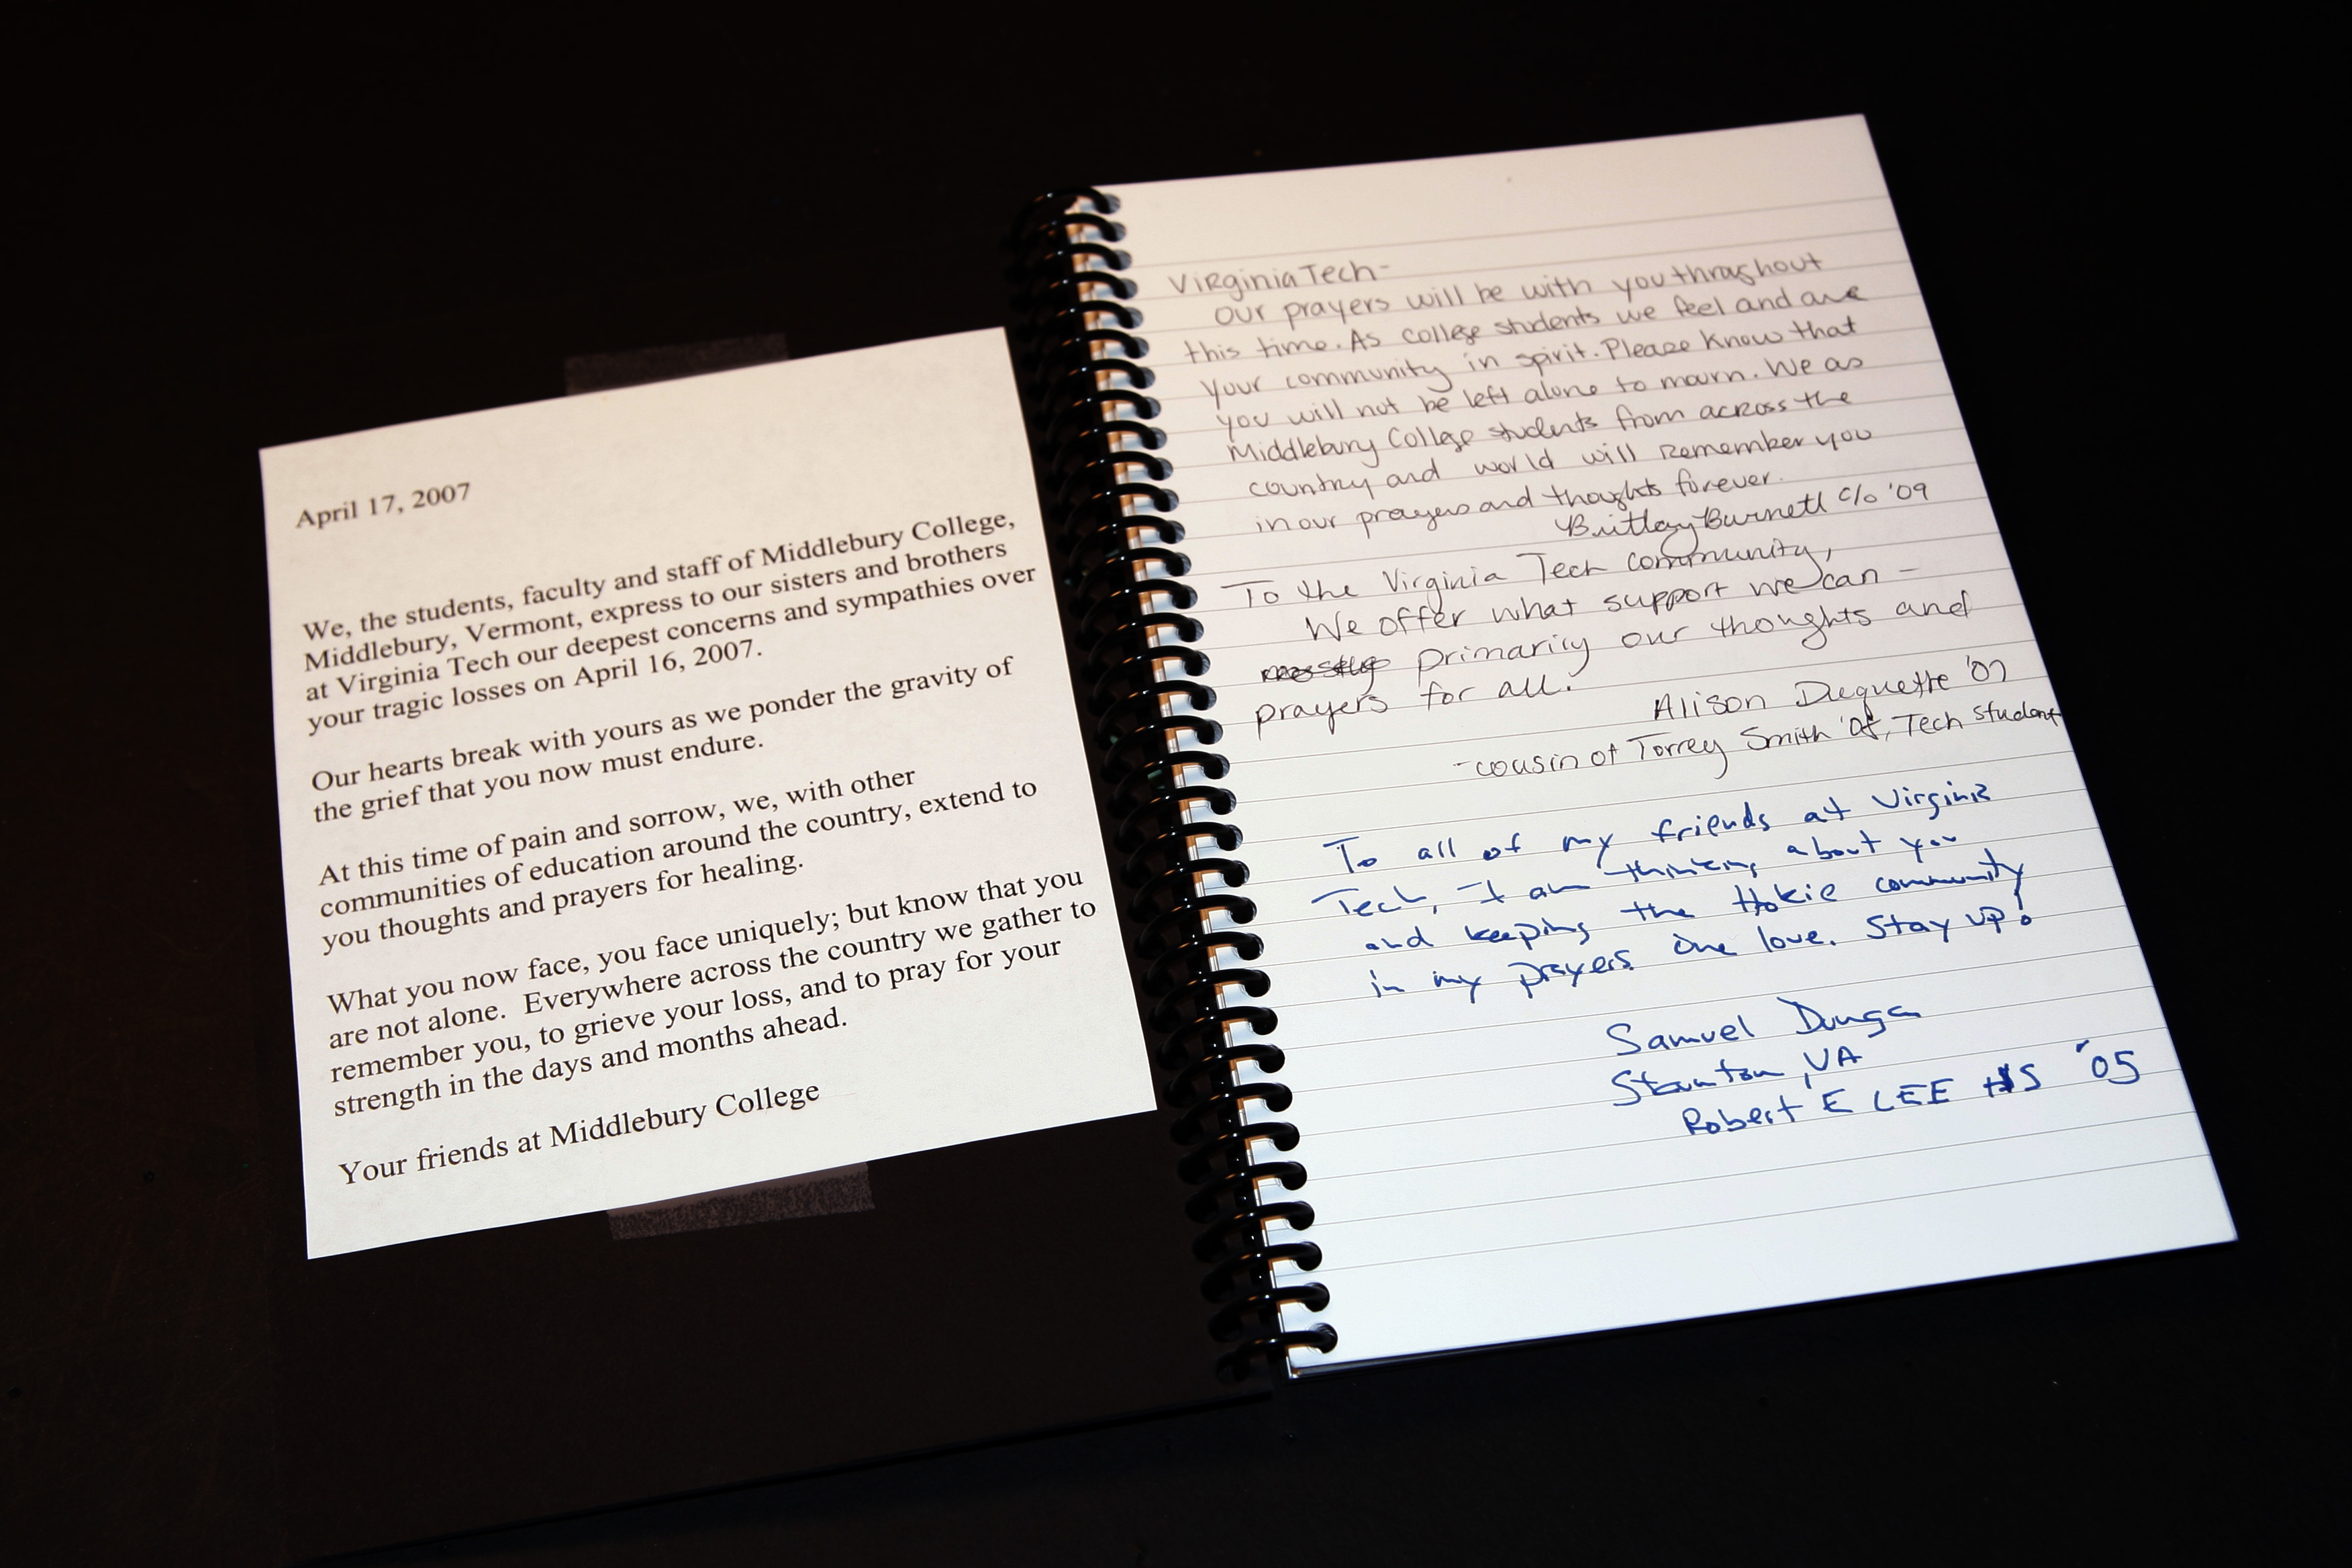 April 17, 2007
We, the students, faculty and staff of Middlebury College,
Middlebury, Vermont, express to our sisters and brothers
at Virginia Tech our deepest concerns and sympathies over
your tragic losses on April 16, 2007.
Our hearts break with yours as we ponder the gravity of
the grief that you now must endure.
At this time of pain and sorrow, we, with other
communities of education around the country, extend to
you thoughts and prayers for healing.
What you now face, you face uniquely; but know that you
are not alone.  Everywhere across the country we gather to
remember you, to grieve your loss, and to pray for your
strength in the days and months ahead.
Your friends at Middlebury College
Virginia Tech-
Our prayers will be with you throughout
this time. As college students we feel and are
your community in spirit. Please know that
you will not be left alone to mourn. We as
Middlebury College students from across the
country and world will remember you
in our prayers and thoughts forever.
Burnett c/o '09
To the Virginia Tech community,
We offer what support we can -
mostly primarily our thoughts and
prayers for all.
Alison Duquette '07
-cousin of Torrey Smith Tech student
To all of my friends at Virginia
Tech, I am thinking about you
and keeping the Hokie community
in my prayers. One love. Stay up!
Samuel
Staunton, VA
Robert E LEE HS '05